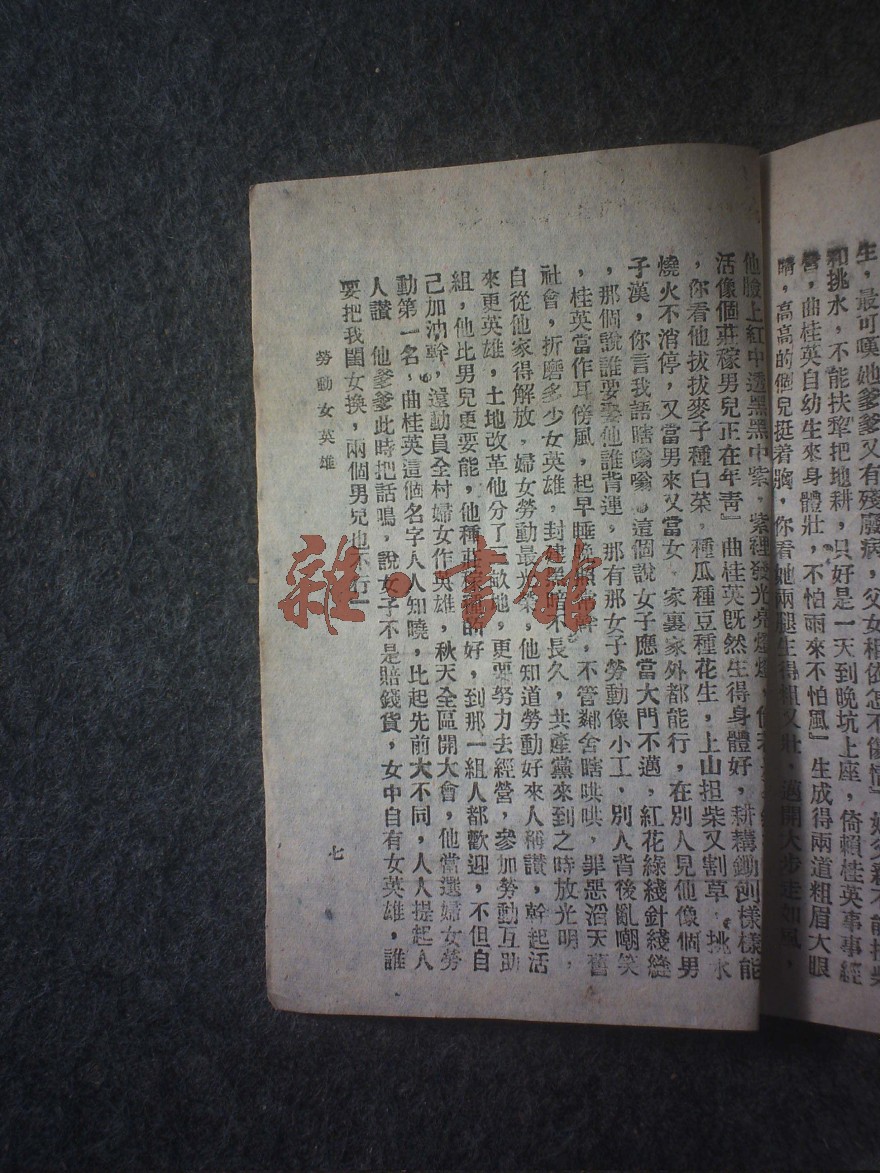 生，最可嘆她爹爹又有殘廢病，父女相依怎不傷情』
和挑水，不能扶犂把地耕，只好是一天到晚坑上座，倚賴桂英事事經
營，曲桂英自幼生來身體壯，不怕雨來不怕風』生成得兩道粗眉大眼
睛，高高的個兒挺着胸，你看她兩腿生得粗又壯，邁開大步走如風，
他臉上紅中透黑黑中紫，紫裡發光亮
活像個莊稼男兒正在年靑』曲桂英旣然生得身體好，耕耩鋤刨樣樣能
，你看他拔拔麥子種白菜，種瓜種豆種花生，上山担柴又割草，挑水
燒火不消停，又當男來又當女，家裏家外都能行，在別人見他像個男
子漢，你言我語瞎嗡嗡。這個說女子應當大門不邁，紅花綠綫針綫縫
，那個說誰要娶他誰背運，那有那女子勞動像小工，別人背後亂嘲笑
，桂英當作耳傍風，起早睡晚 不管鄰舍瞎哄哄，罪惡滔天舊
社會，折磨多少女英雄，封建 暗不長久，共產黨來到之時放光明，
自從他家得解放，婦女勞動最光榮，他知道勞動好來人稱讚，幹起活
來更英雄，土地改革他分了 畝地，更要努力去經營，參加勞動互助
組，他比男兒更要能，他種莊稼種的好，到那一組人都歡迎，不但自
己加油幹，還動員全村婦女作英雄，秋天全區開大會，他當選婦女勞
動第一名，曲桂英這個名字人人知曉，比起先前大不同，人人提起人
人讚 他爹爹此時把話鳴，說女子不是賠錢貨，女中自有女英雄，誰
要把我閨女換，兩個男兒也不行
勞動女英雄
七
雜·書館